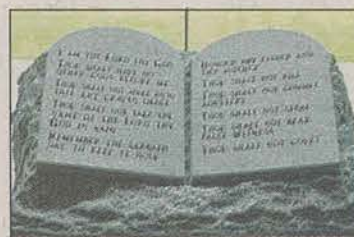 I AM THE LORD THY GOD
THOU SHALT HAVE NO
OTHER GODS BEFORE ME
THOU SHALT NOT MAKE UNTO
THEE ANY GRAVEN IMAGE
THOU SHALT NOT TAKE THE
NAME OF THE LORD THY
GOD IN VAIN
REMEMBER THE SABBATH
DAY TO KEEP IT HOLY
HONOUR THY FATHER AND
THY MOTHER
THOU SHALT NOT KILL
THOU SHALT NOT COMMIT
ADULTERY
THOU SHALT NOT STEAL
THOU SHALT NOT BEAR
WITNESS
THOU SHALT NOT COVET